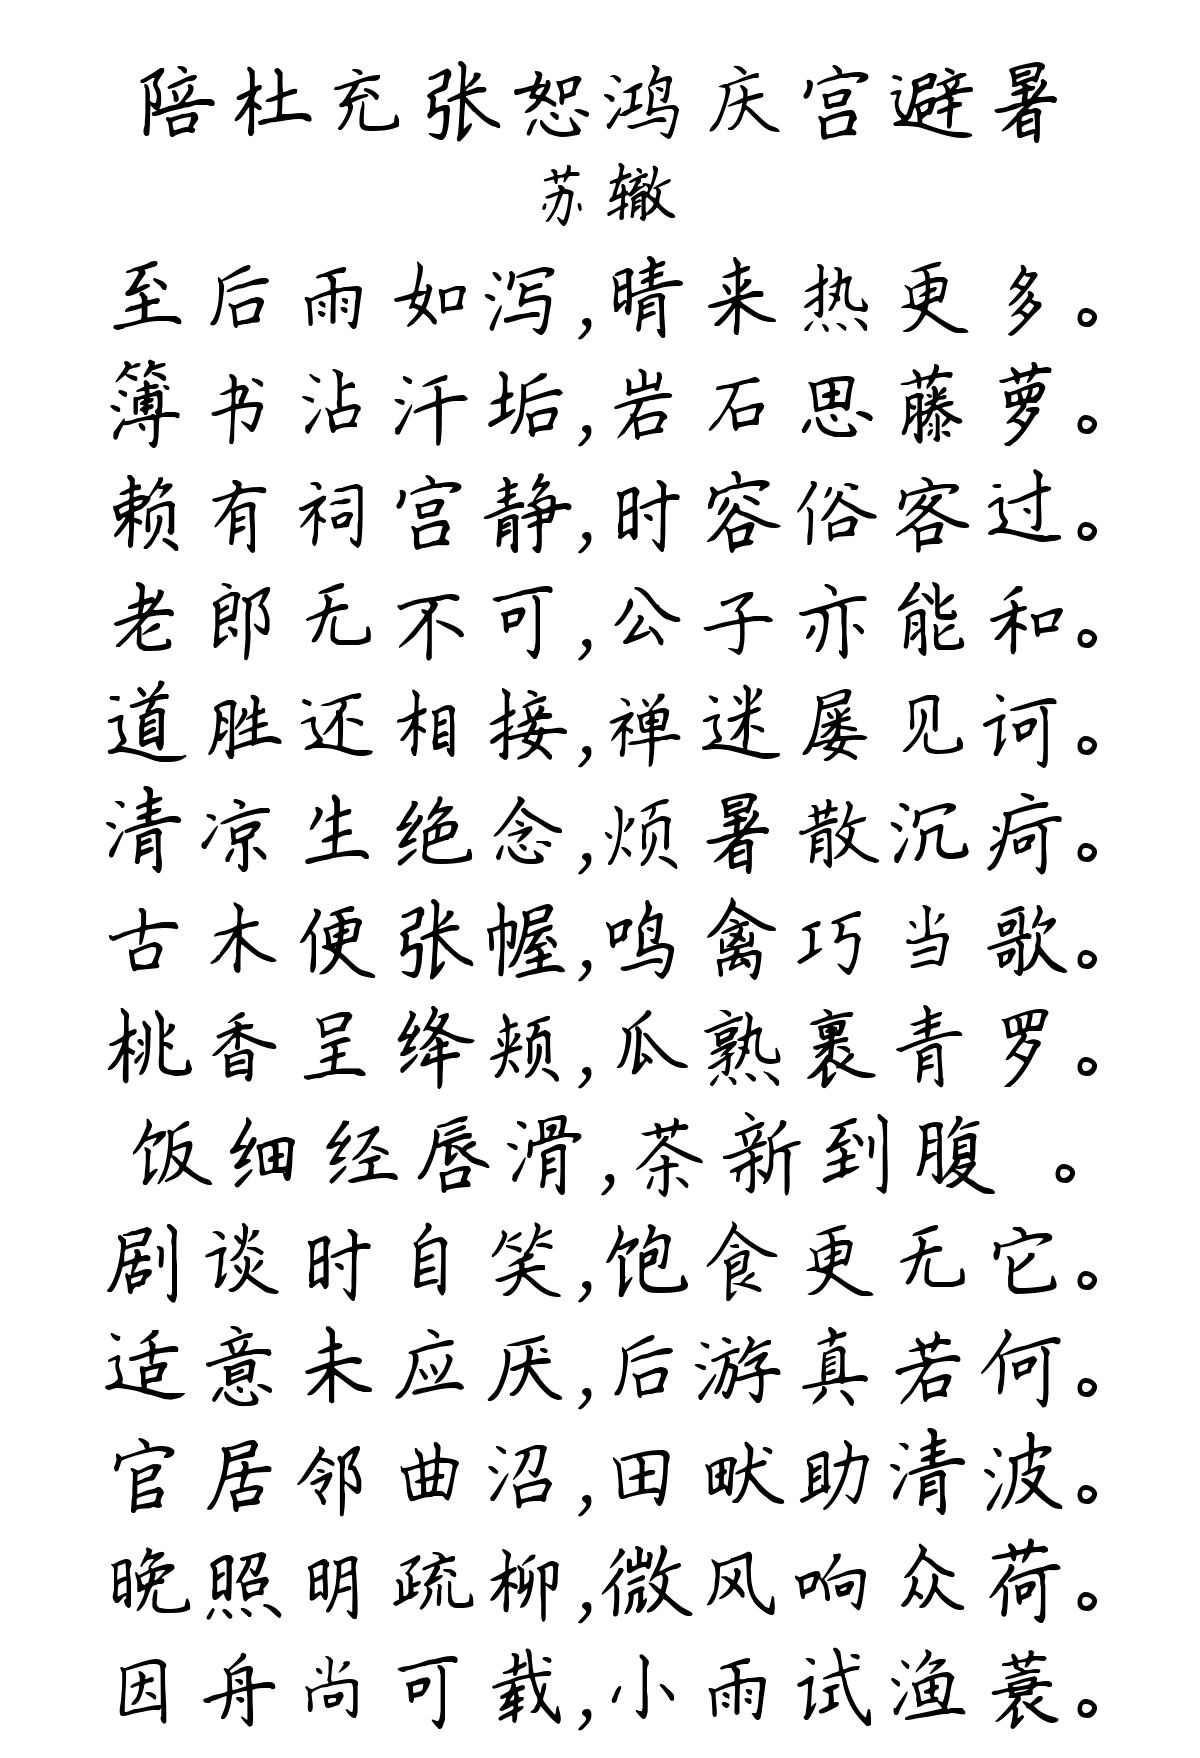 陪杜充张恕鸿庆宫避暑
苏辙
至后雨如泻,晴来热更多。
簿书沾汗垢,岩石思藤萝。
赖有祠宫静,时容俗客过。
老郎无不可,公子亦能和。
道胜还相接,禅迷屡见诃。
清凉生绝念,烦暑散沉疴。
古木便张幄,鸣禽巧当歌。
桃香呈绛颊,瓜熟裹青罗。
饭细经唇滑,茶新到腹 。
剧谈时自笑,饱食更无它。
适意未应厌,后游真若何。
官居邻曲沼,田畎助清波。
晚照明疏柳,微风响众荷。
因舟尚可载,小雨试渔蓑。